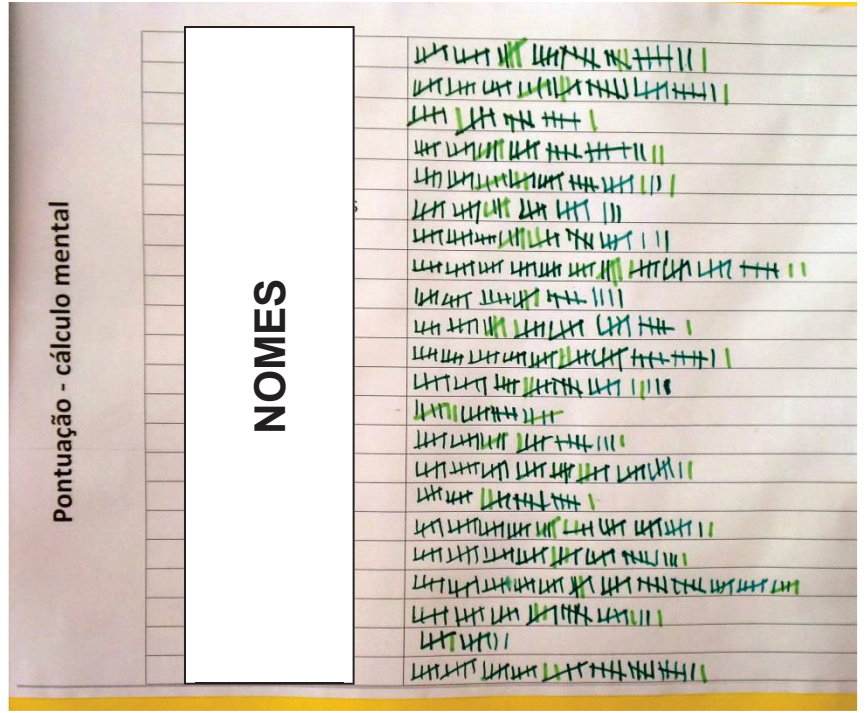 Pontuação - cálculo mental
NOMES